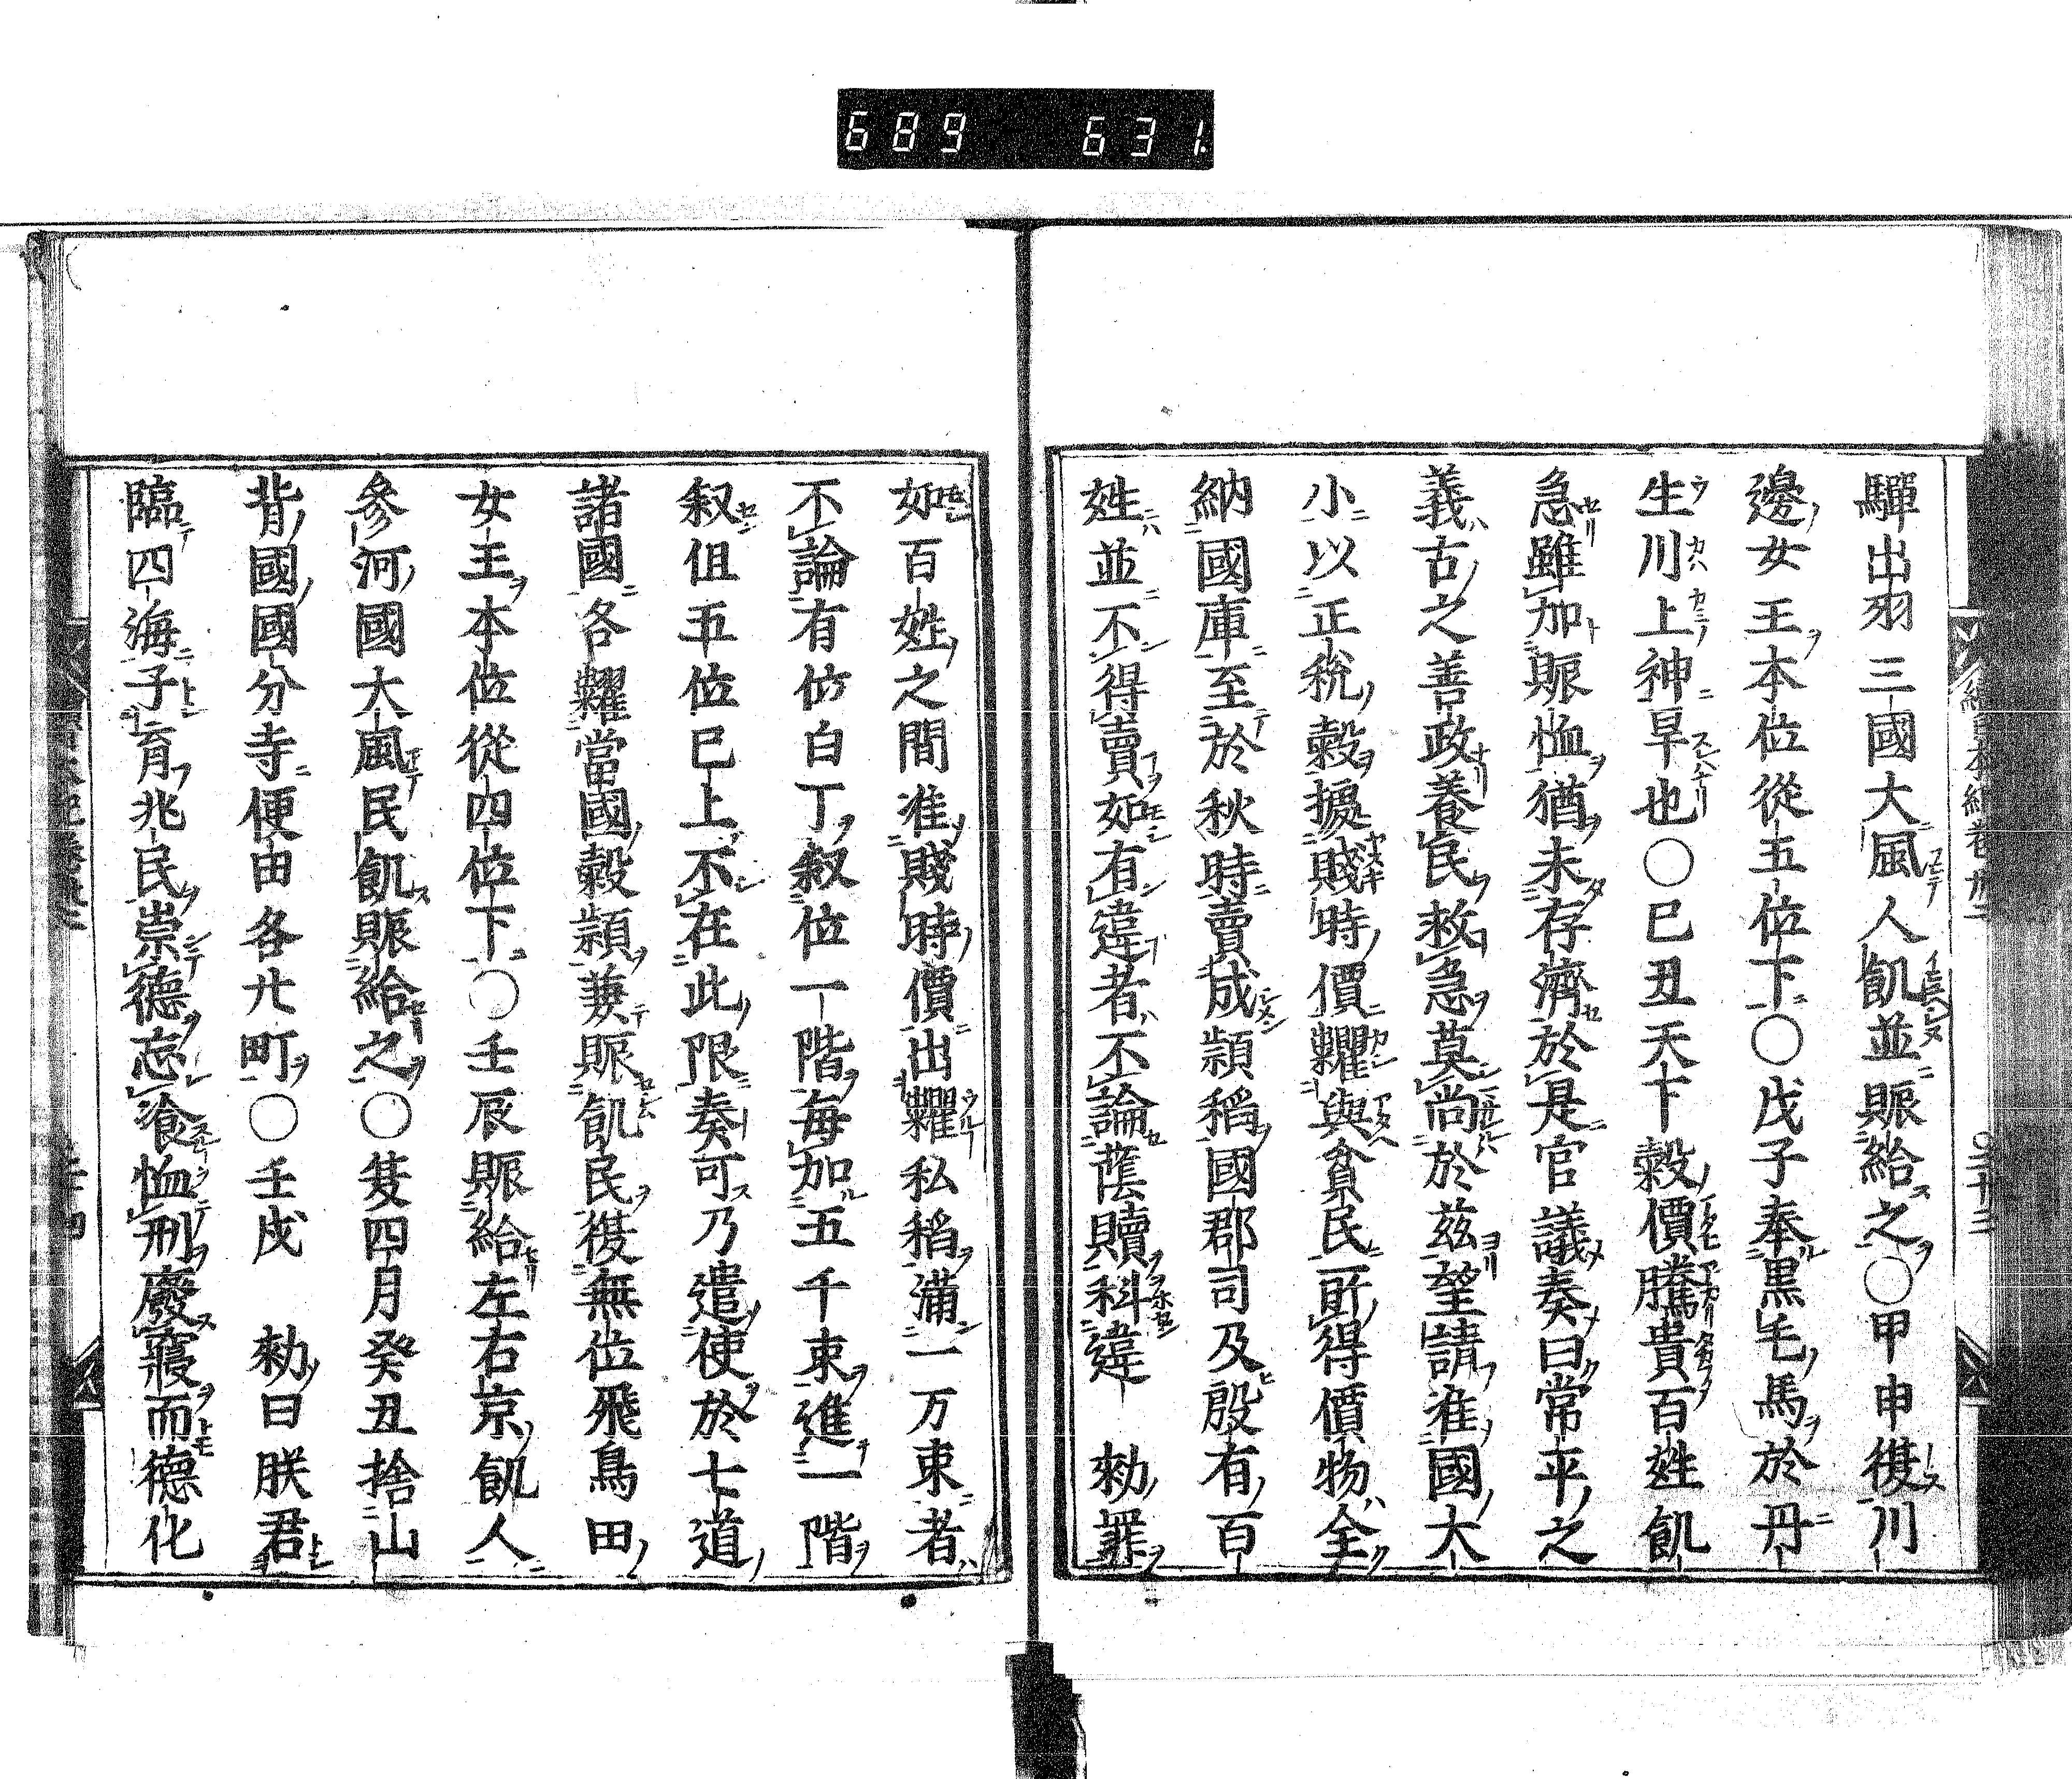 689 631
驒出羽三國大風人飢並賑給之〇甲申復川
邊女王本位從五位下〇戊子奉黒毛馬於丹
生川上神旱也〇己丑天下穀價騰貴百姓飢
急雖加賑恤猶未存濟於是官議奏曰常平之
義古之善政養民救急莫尚於茲望請准國大
小以正稅穀據賤時價糶與貧民所得價物全
納國庫至於秋時賣成頴稻國郡司及殷有百
姓並不得賣如有違者不論蔭贖科違勅罪
如百姓之間准賤時價出糶私稻滿一万束者
不論有位白丁叙位一階每加五千束進一階
叙但五位已上不在此限奏可乃遣使於七道
諸國各糶當國穀頴兼賑飢民復無位飛鳥田
女王本位從四位下〇壬辰賑給左右京飢人
參河國大風民飢賑給之〇夏四月癸丑捨山
背國國分寺便田各廿町〇壬戌　勅曰朕君
臨四海子育兆民崇德忘飡恤刑廢寢而德化